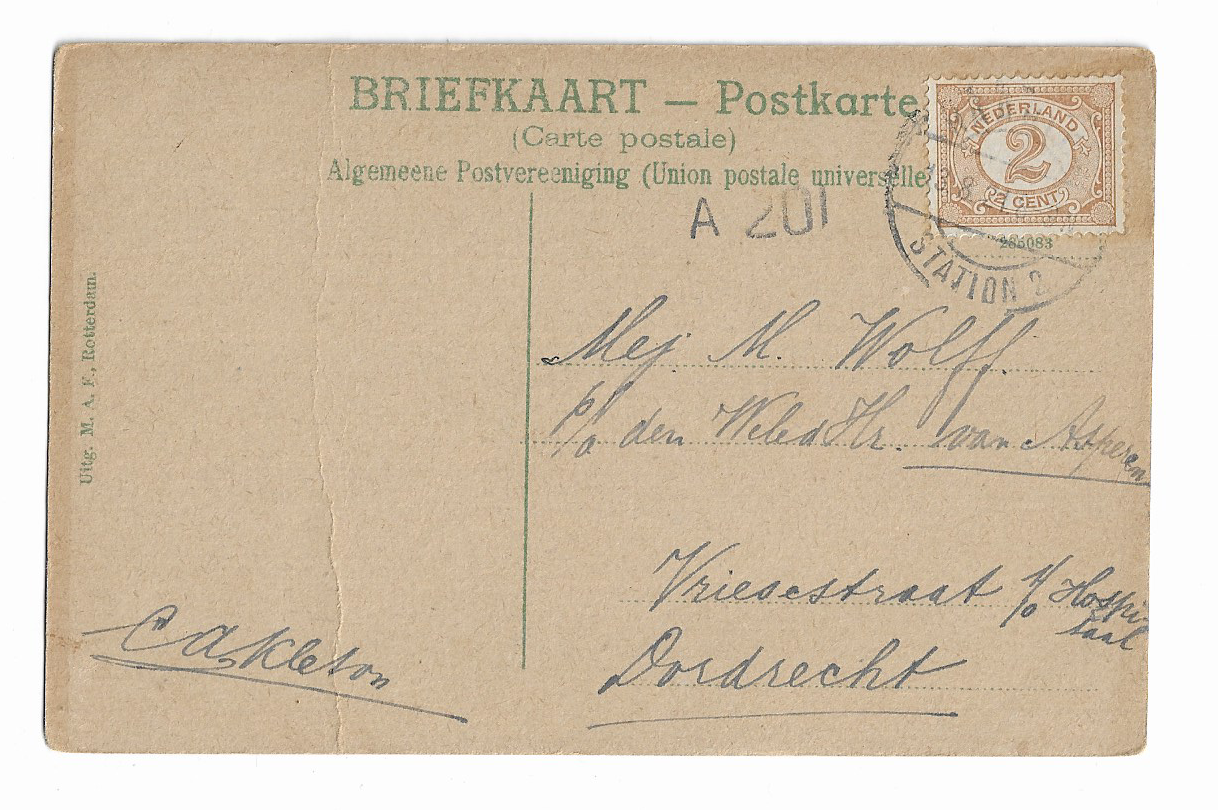 BRIEFKAART — Postkarte
(Carte postale)
Algemeene Postvereeniging (Union postale universelle
NEDERLAND
2
2 CENT
265083
STATION 2
A 201
Mej. M. Wolff.
p/a den Weled Hr. van Asperen
Vriesestraat t/o Hospi-
taal
Dordrecht
Uitg. M. A. F., Rotterdam.